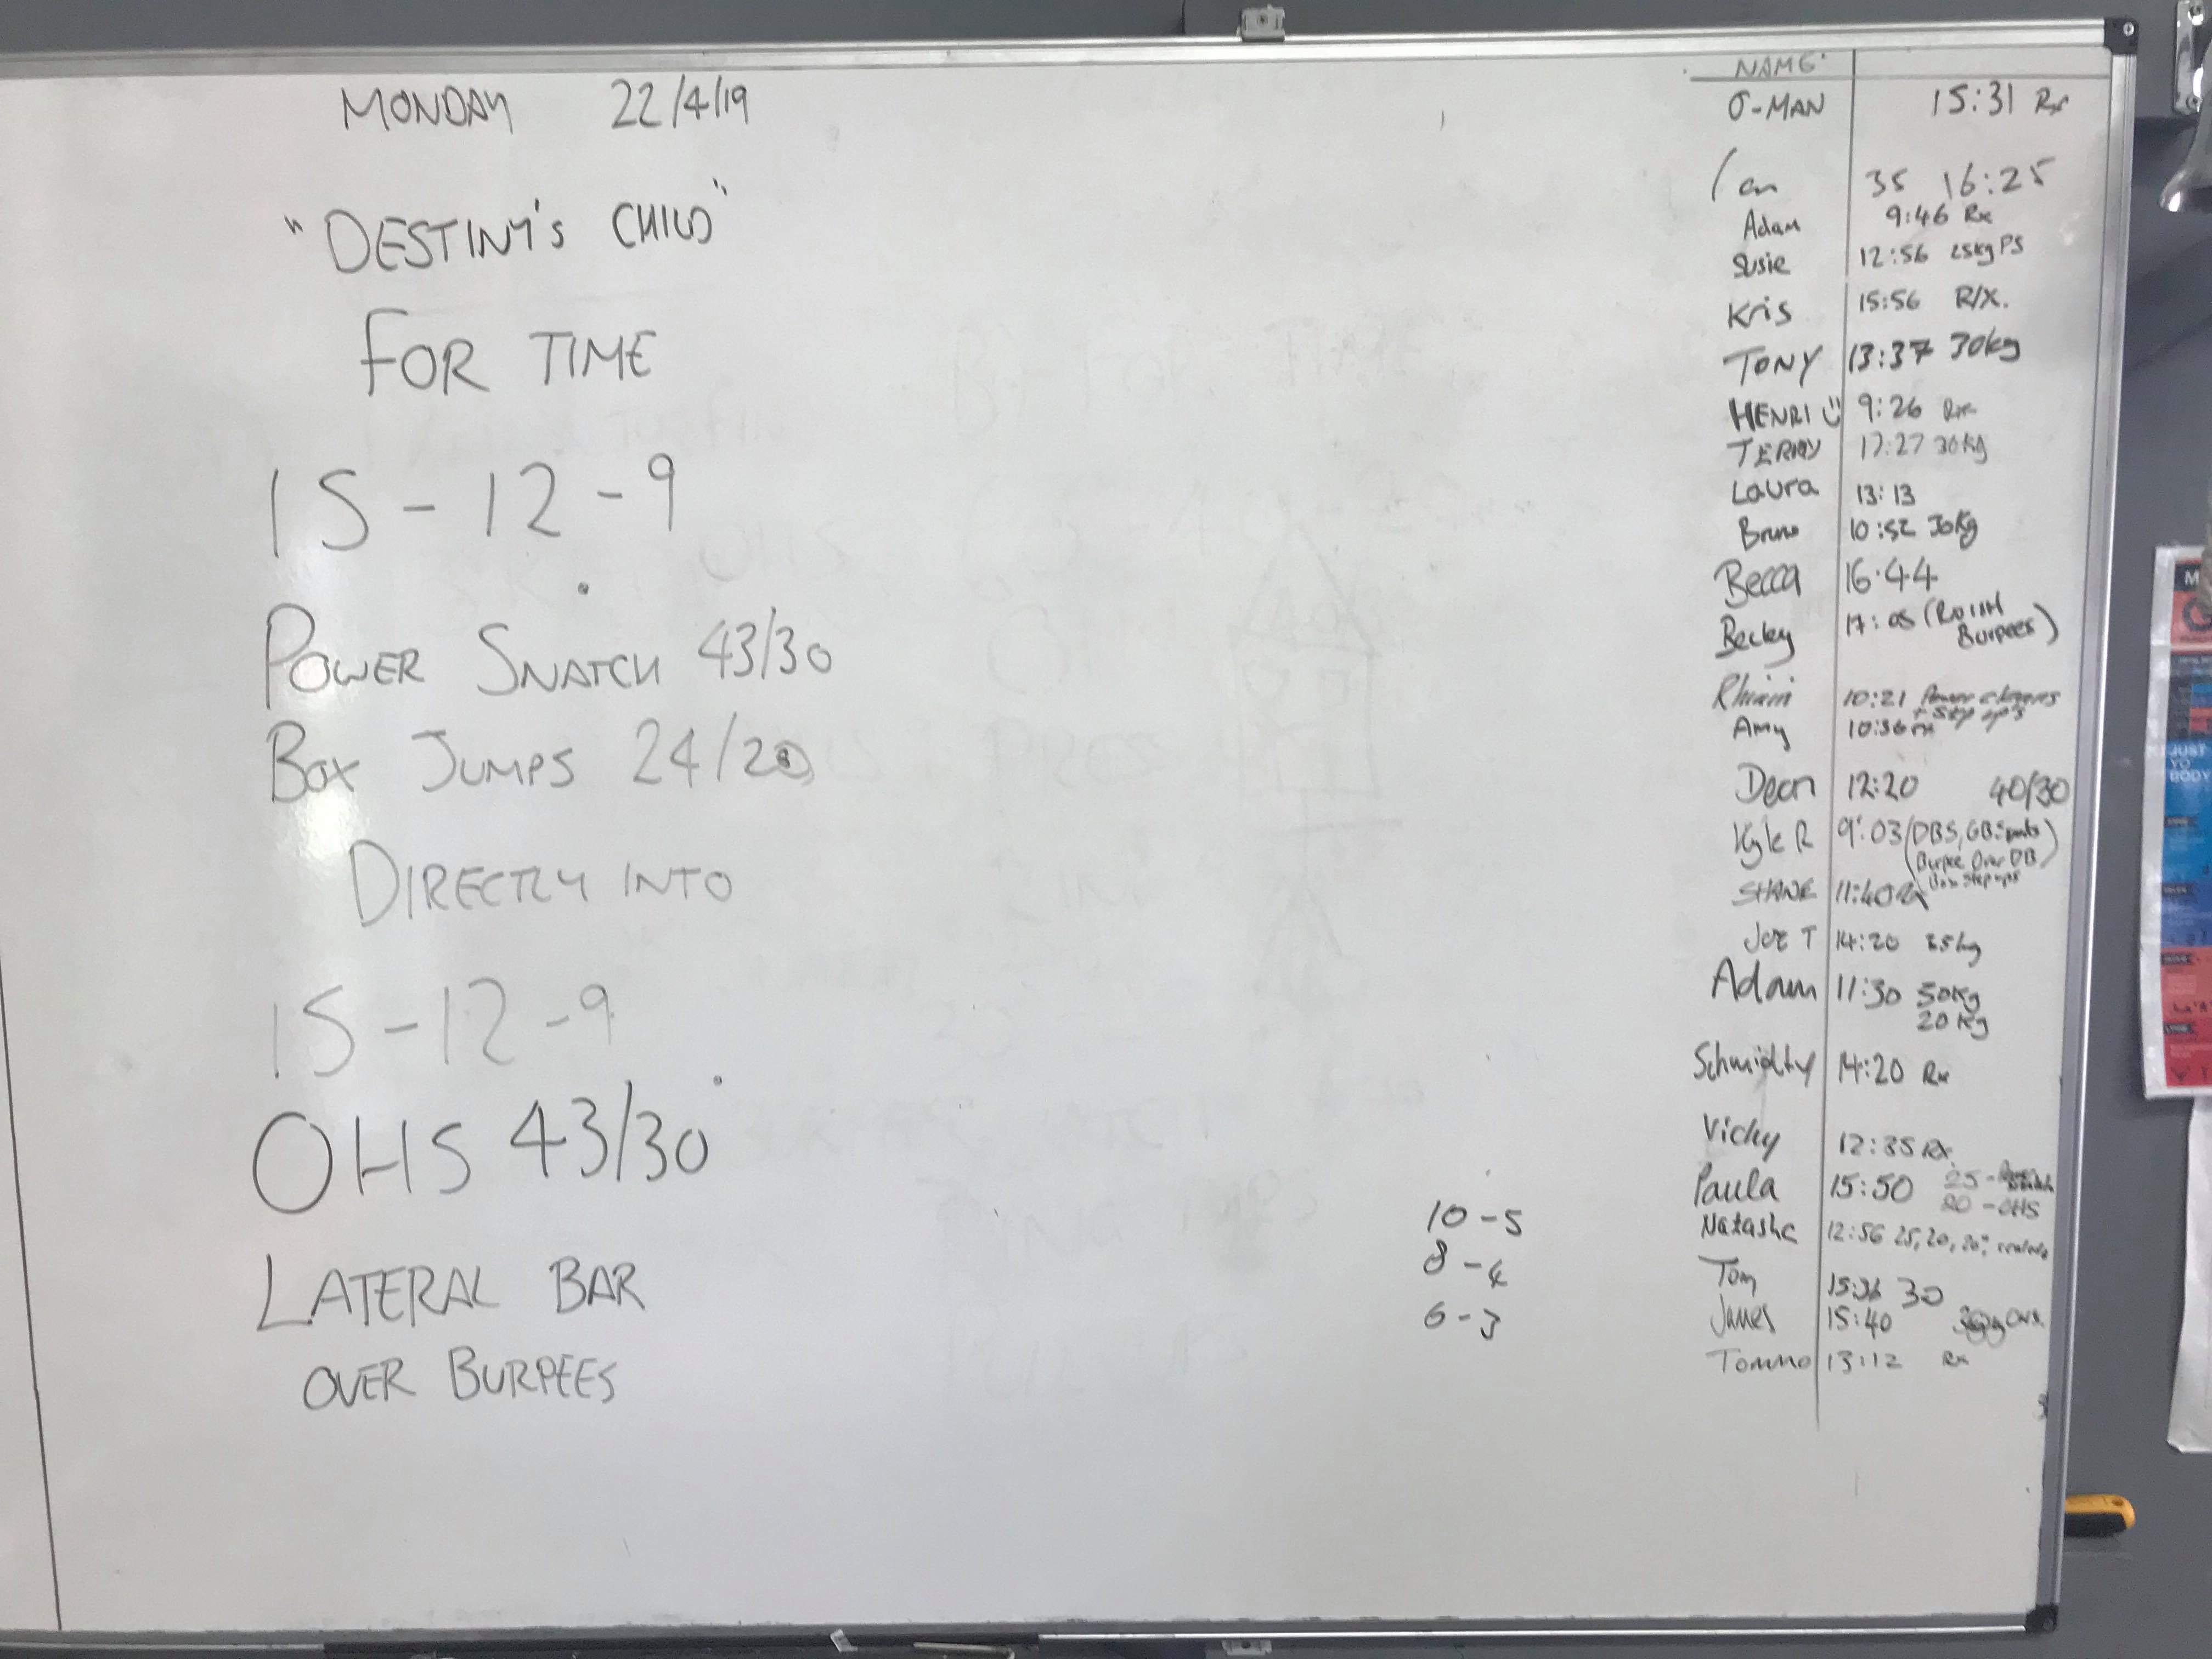 MONDAY 22/4/19
"DESTINY'S CHILD"
FOR TIME
15-12-9
POWER SNATCH 43/30
BOX JUMPS 24/20
DIRECTLY INTO
15-12-9
OHS 43/30
LATERAL BAR
OVER BURPEES
10-5
8-4
6-3
NAME
O-MAN 15:31 Rx
35 16:25
Adam 9:46 Rx
Susie 12:56 25kg PS
Kris 15:56 R/X.
TONY 13:37 30kg
HENRI 9:26 Rx
TERRY 30kg
Laura 13:13
Bruno 10:52 30kg
Becca 16.44
Becky 17:05 (
Burpees)
10:21 Power cleans
+ step up's
Amy 10:36 rx
Dean 12:20 40/30
Kyle R 9:03 (DBS,
Burpee Over DB)
Box step ups
SHANE 11:40 Rx
JOE T 14:20 35kg
Adam 11:30
20kg
Schmidty 14:20 Rx
Vicky 12:35 Rx
Paula 15:50 25-Power Snatch
20-OHS
Natasha 12:56 25, 20, 20"
Tom 30
James 15:40 OHS.
Tommo 13:12 Rx
JUST
YO
BODY